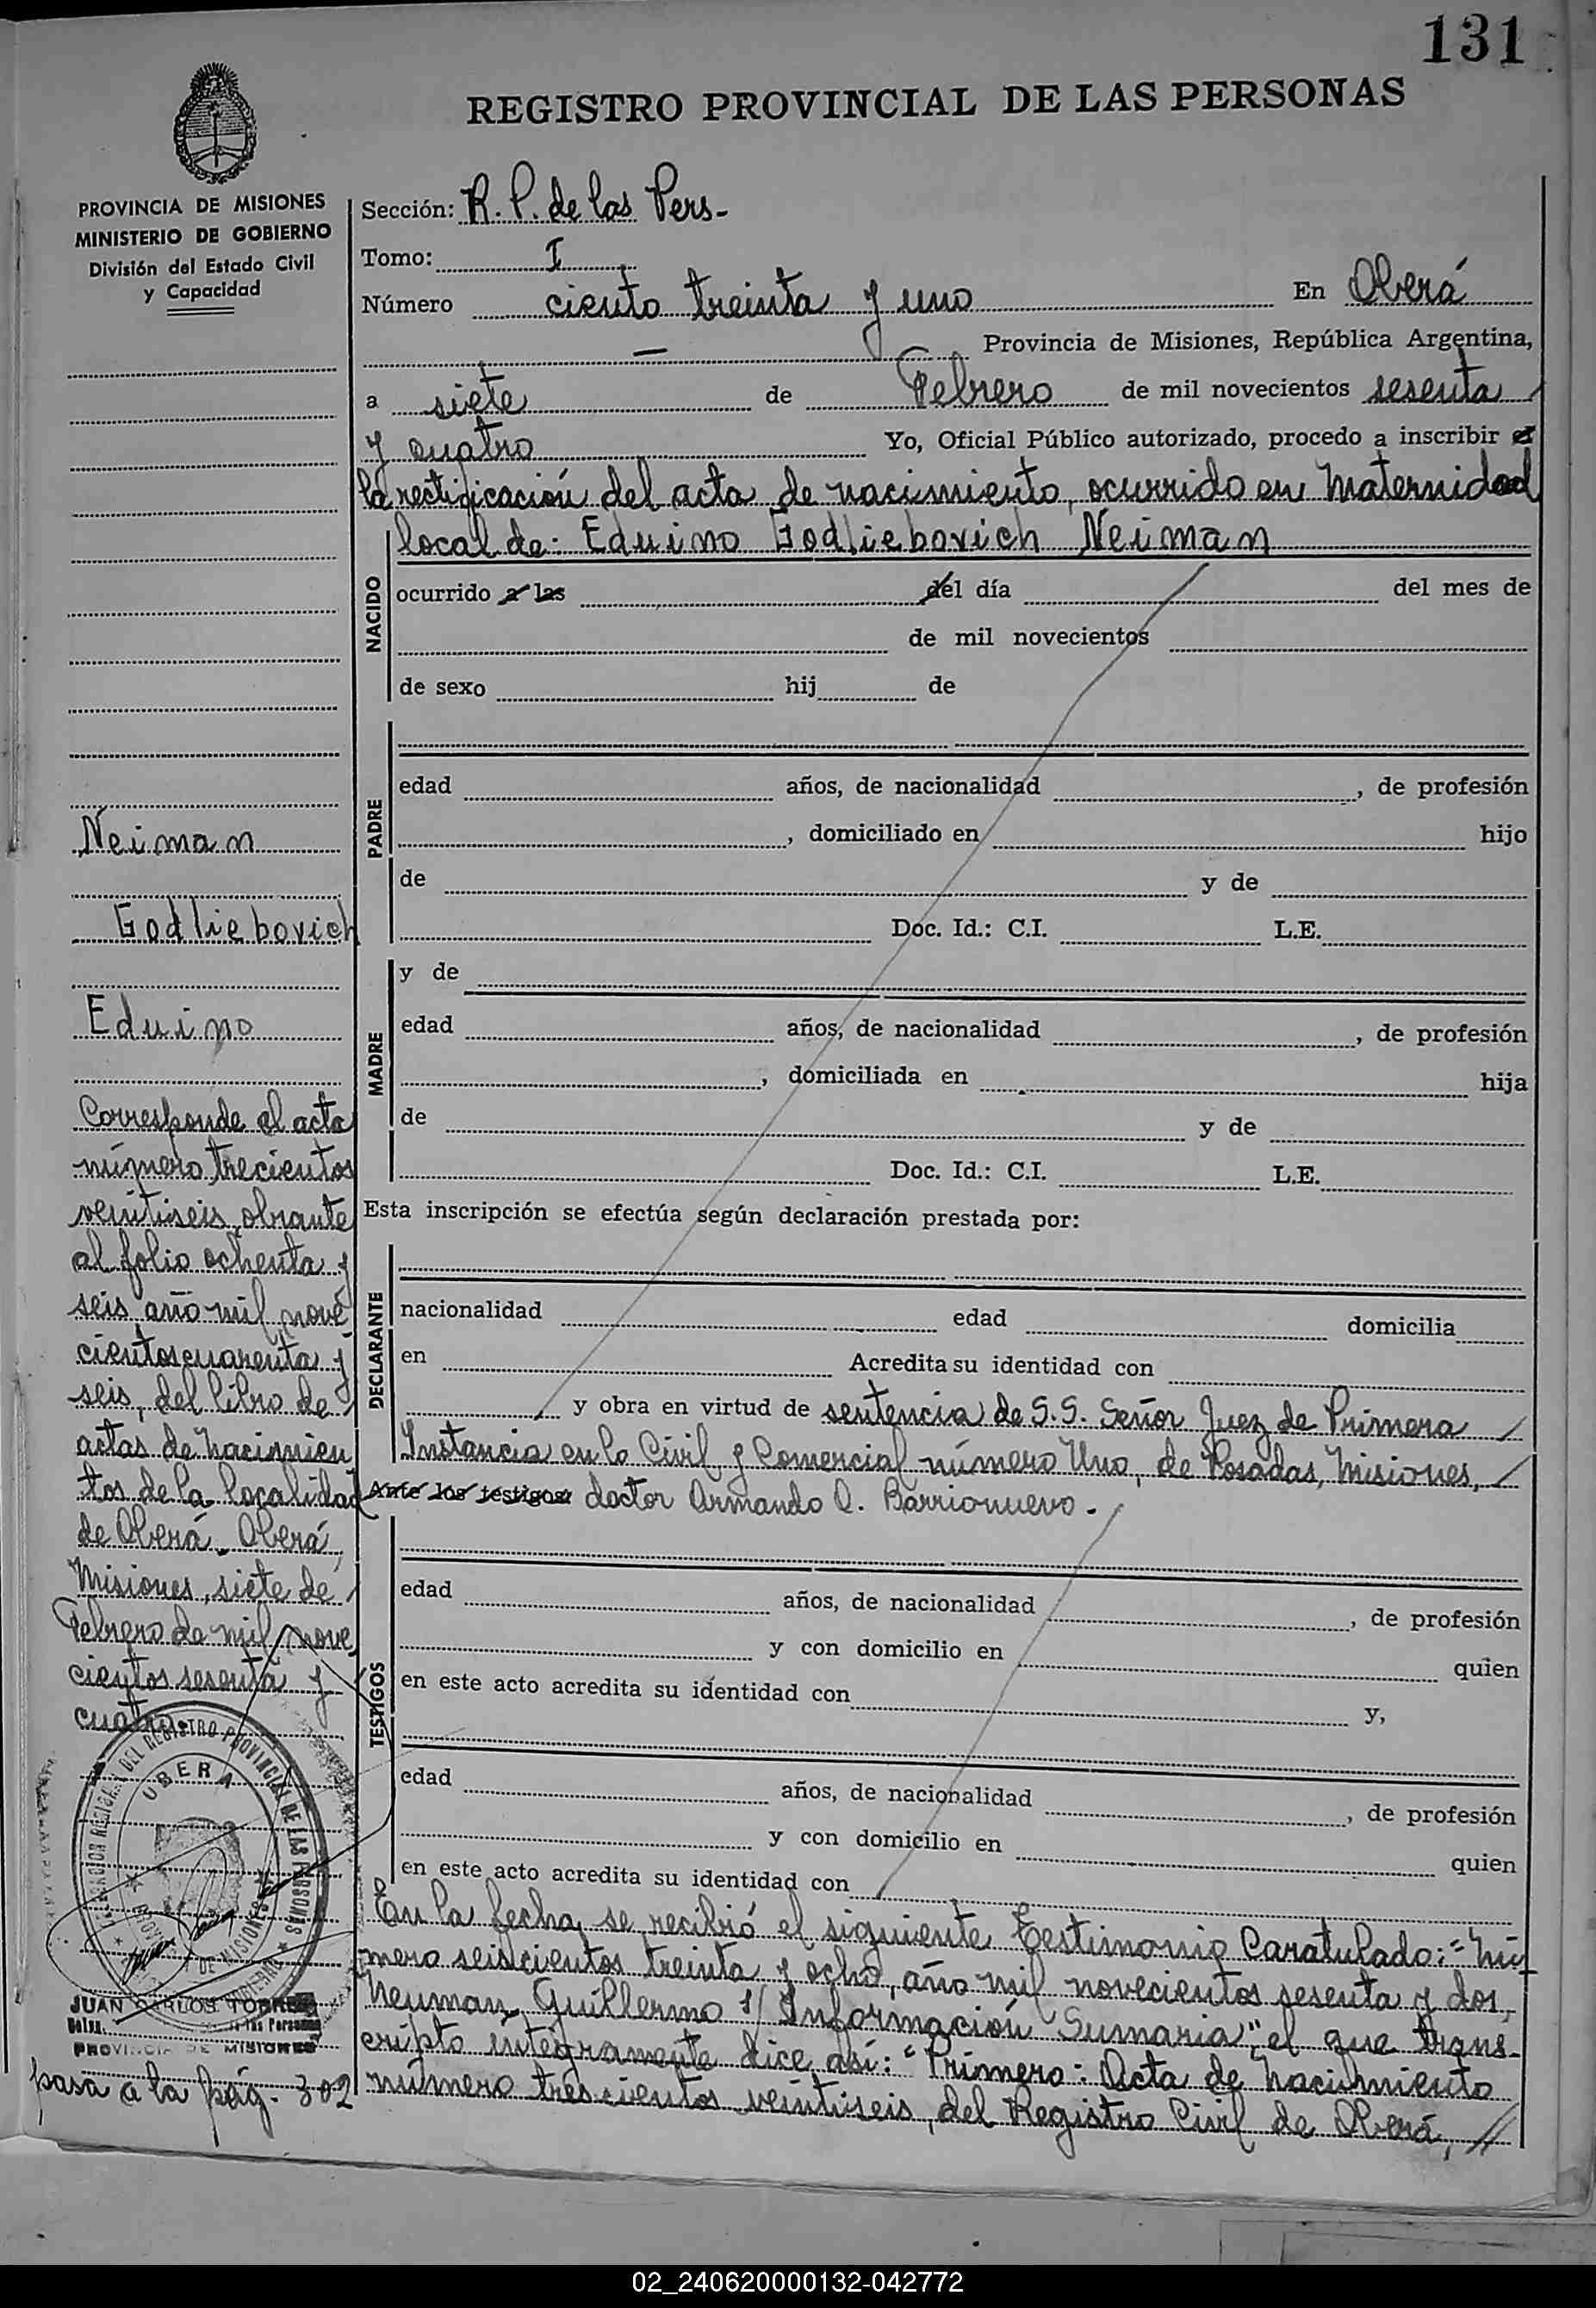 131
REGISTRO PROVINCIAL DE LAS PERSONAS
PROVINCIA DE MISIONES
MINISTERIO DE GOBIERNO
División del Estado Civil
y Capacidad
Neiman
Godliebovich
Eduino
Corresponde al acta
número trecientos
veintiseis, obrante
al folio ochenta y
seis, año mil nove
cientos cuarenta y
seis, del libro de
actas de nacimien
tos de la localidad
de Oberá. Oberá,
Misiones, siete de
Febrero de mil nove
cientos sesenta y
cuatro.
DEL REGISTRO PROVINCIAL DE LAS PERSONAS
OBERA
DE MISIONES
JUAN CARLOS TORRES
de las Personas
PROVINCIA DE MISIONES
pasa a la pág. 302
Sección: R. P. de las Pers-
Tomo: I
Número ciento treinta y uno En Oberá
— Provincia de Misiones, República Argentina,
a siete de Febrero de mil novecientos sesenta
y cuatro Yo, Oficial Público autorizado, procedo a inscribir el
la rectificación del acta de nacimiento, ocurrido en Maternidad
local de: Eduino Godliebovich Neiman
NACIDO
ocurrido a las del día del mes de
de mil novecientos
de sexo hij de
PADRE
edad años, de nacionalidad , de profesión
, domiciliado en hijo
de y de
Doc. Id.: C.I. L.E.
MADRE
y de
edad años, de nacionalidad , de profesión
, domiciliada en hija
de y de
Doc. Id.: C.I. L.E.
Esta inscripción se efectúa según declaración prestada por:
DECLARANTE
nacionalidad edad domicilia
en Acredita su identidad con
y obra en virtud de sentencia de S.S. Señor Juez de Primera
Instancia en lo Civil y Comercial número Uno, de Posadas, Misiones,
Ante los testigos: doctor Armando O. Barrionuevo.-
TESTIGOS
edad años, de nacionalidad , de profesión
y con domicilio en quien
en este acto acredita su identidad con y,
edad años, de nacionalidad , de profesión
y con domicilio en quien
en este acto acredita su identidad con
En la fecha se recibió el siguiente Testimonio Caratulado:="Nú-
mero seiscientos treinta y ocho, año mil novecientos sesenta y dos,
Neuman, Guillermo s/ Información Sumaria", el que trans-
cripto integramente dice así: "Primero: Acta de Nacimiento
número trescientos veintiseis, del Registro Civil de Oberá, //
02_240620000132-042772